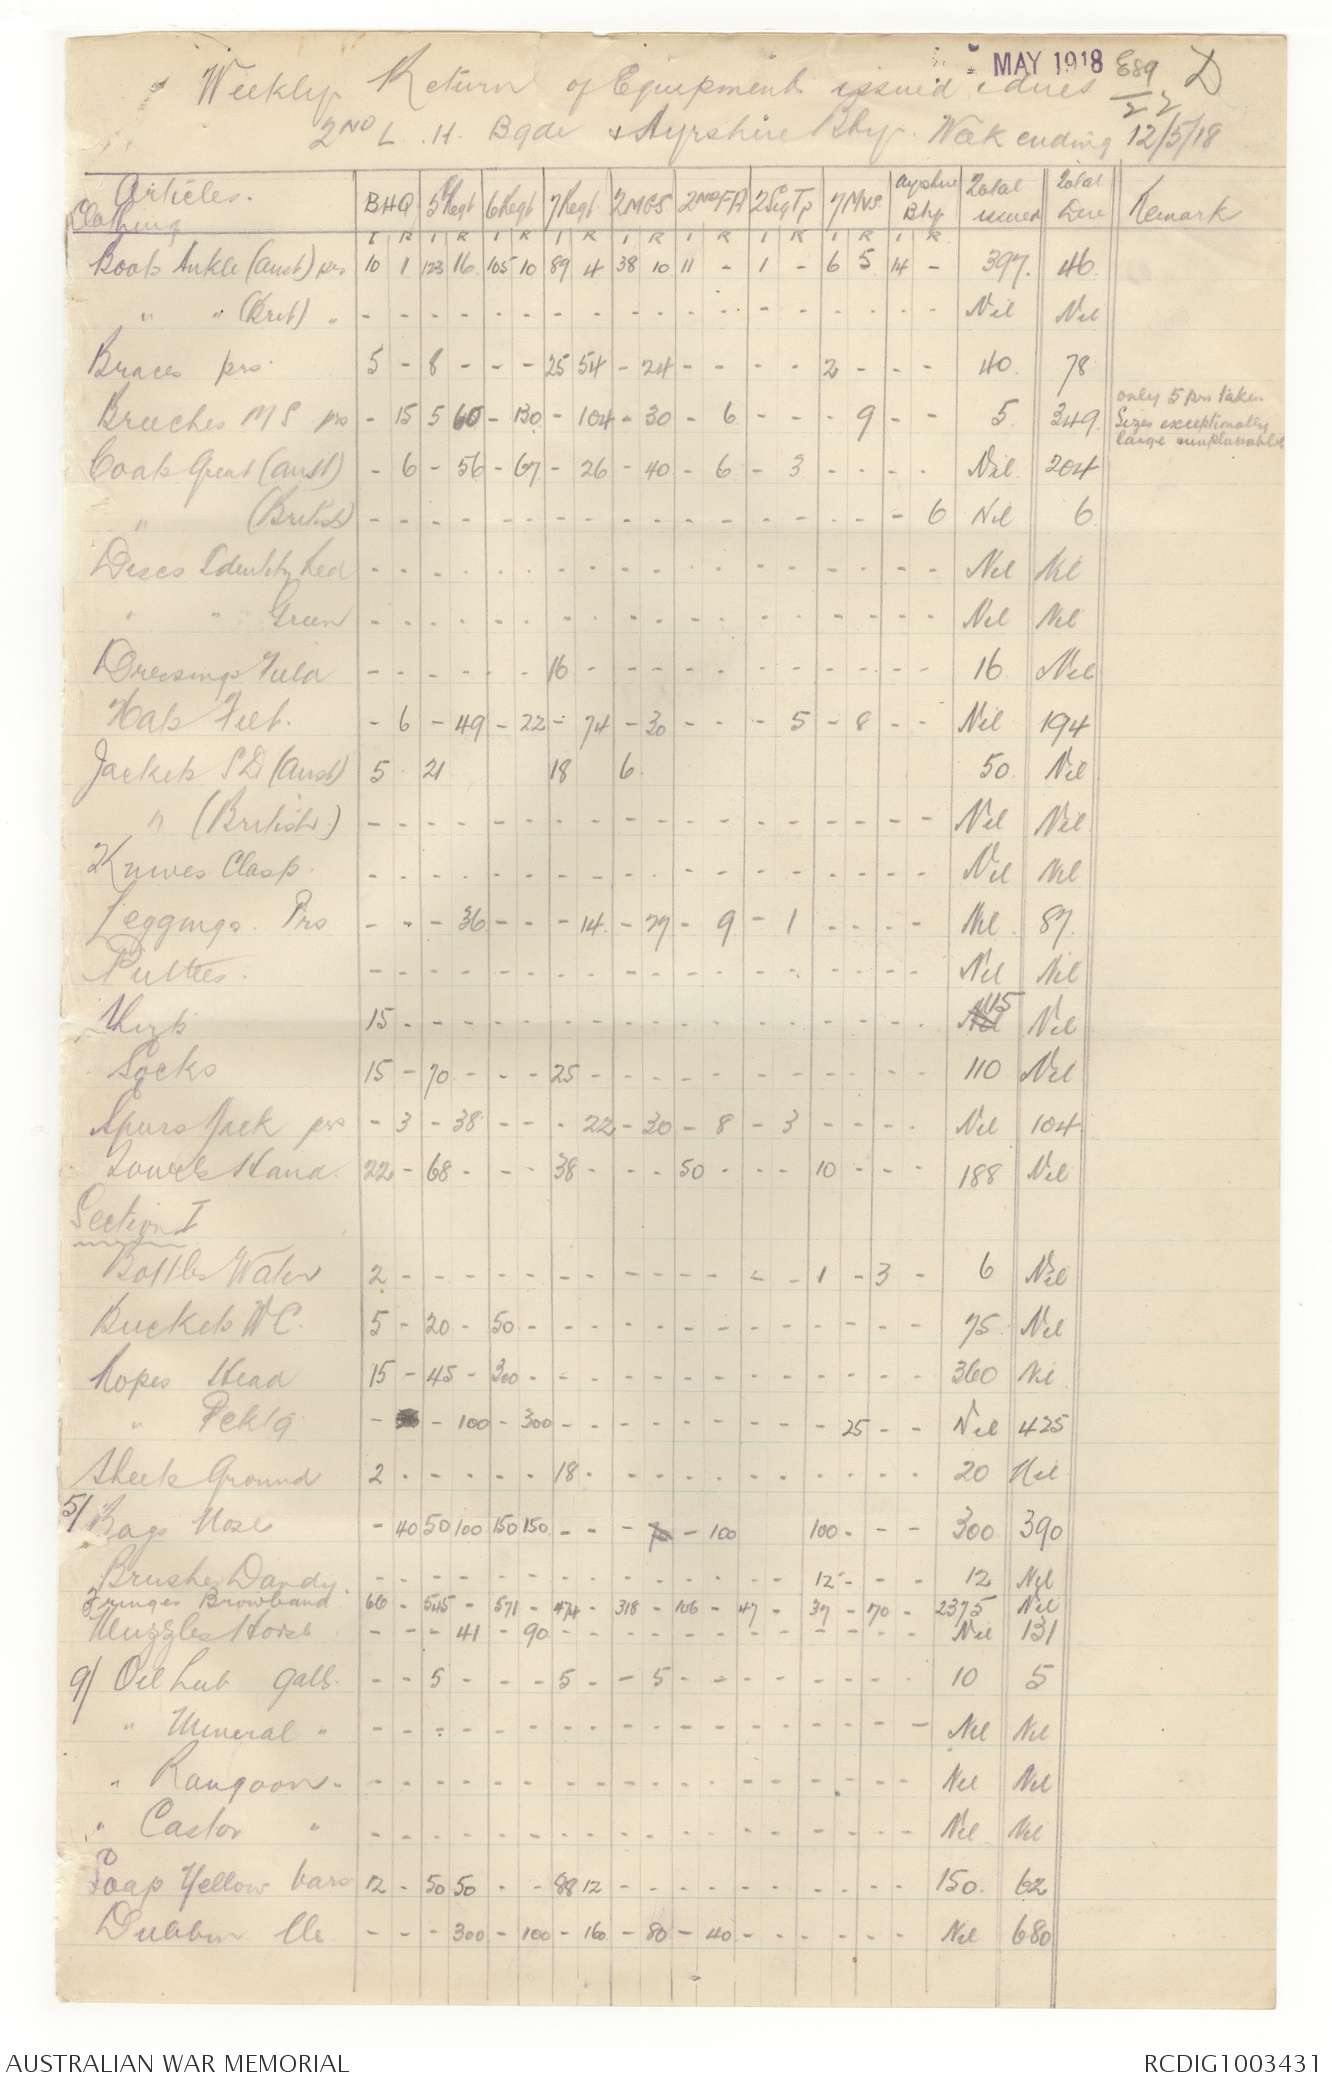 MAY 1918 E89/22 D
Weekly Return of Equipment issued & dues
2ND L. H. Bgde & Ayrshire Bty. Week ending 12/5/18
Articles. BHQ 5 Regt 6 Regt 7 Regt 2 MGS 2ND FA 2 Sig Tp 7 MVS Ayrshire Bty Total issued Total Due Remark
Clothing I R I R I R I R I R I R I R I R I R
Boots Ankle (Aust) prs 10 1 123 16 105 10 89 4 38 10 11 - 1 - 6 5 14 - 397. 46
" " (Brit) " - - - - - - - - - - - - - - - - - - Nil Nil
Braces prs. 5 - 8 - - - 25 54 - 24 - - - - 2 - - - 40. 78
Breeches M S prs - 15 5 60 - 130 - 104 - 30 - 6 - - - 9 - - 5. 349. only 5 prs taken
Sizes exceptionally
large
Coats Great (Aust) - 6 - 56 - 67 - 26 - 40 - 6 - 3 - - - - Nil 204
" (British) - - - - - - - - - - - - - - - - - 6 Nil 6
Discs Identity Red - - - - - - - - - - - - - - - - - - Nil Nil
" " Green - - - - - - - - - - - - - - - - - - Nil Nil
Dressings Field - - - - - - 16 - - - - - - - - - - - 16 Nil
Hats Felt. - 6 - 49 - 22 - 74 - 30 - - - 5 - 8 - - Nil 194
Jackets SD (Aust) 5 21 18 6 50 Nil
" (British) - - - - - - - - - - - - - - - - - - Nil Nil
Knives Clasp. - - - - - - - - - - - - - - - - - - Nil Nil
Leggings. Prs - - - 36 - - - 14 - 27 - 9 - 1 - - - - Nil 87.
Puttees. - - - - - - - - - - - - - - - - - - Nil Nil
Shirts 15 - - - - - - - - - - - - - - - - - Nil 15 Nil
Socks 15 - 70 - - - 25 - - - - - - - - - - - 110 Nil
Spurs Jack prs - 3 - 38 - - - 22 - 30 - 8 - 3 - - - - Nil 104
Towels Hand. 22 - 68 - - - 38 - - - 50 - - - 10 - - - 188 Nil
Section I
Bottles Water 2 - - - - - - - - - - - - - 1 - 3 - 6 Nil
Buckets WC. 5 - 20 - 50 - - - - - - - - - - - - - 75 Nil
Ropes Head 15 - 45 - 300 - - - - - - - - - - - - - 360 Nil
" Pektg - - 100 - 300 - - - - - - - - - 25 - - Nil 425
Sheets Ground 2 - - - - - 18 - - - - - - - - - - - 20 Nil
5/ Bags Nose - 40 50 100 150 150 - - - - 100 100 - - - 300 390
Brushes Dandy. - - - - - - - - - - - - - - 12 - - - 12 Nil
Fringes Browband 66 - 545 - 571 - 474 - 318 - 106 - 47 - 37 - 170 - 2375 Nil
Muzzles Horse - - - 41 - 90 - - - - - - - - - - - - Nil 131
9/ Oil Lub galls. - - 5 - - - 5 - - 5 - - - - - - - - 10 5
" Mineral " - - - - - - - - - - - - - - - - - - Nil Nil
" Rangoon " - - - - - - - - - - - - - - - - - - Nil Nil
" Castor " - - - - - - - - - - - - - - - - - - Nil Nil
Soap Yellow bars 12 - 50 50 - - 88 12 - - - - - - - - - - 150. 62
Dubbin lbs - - - 300 - 100 - 160 - 80 - 40 - - - - - - Nil 680
AUSTRALIAN WAR MEMORIAL RCDIG1003431